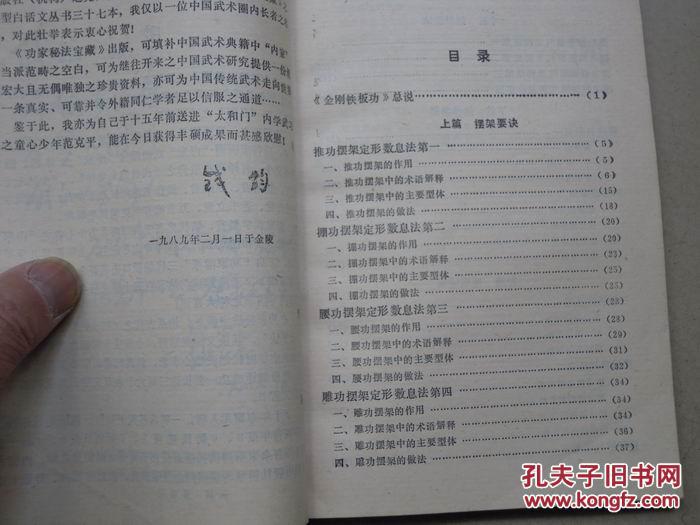 型白话文丛书三十七本，我仅以一位中国武术圈内长者之
，对此壮举表示衷心祝贺！
《功家秘法宝藏》出版，可填补中国武术典籍中“内家
当派范畴之空白，可为继往开来之中国武术研究提供一份
宏大且无偶唯独之珍贵资料，亦可为中国传统武术走向世
一条真实、可靠并令外籍同仁学者足以信服之通道……
鉴于此，我亦为自己于十五年前送进“太和门”内学武
之童心少年范克平，能在今日获得丰硕成果而甚感欣慰！
一九八九年二月一日于金陵
目录
《金刚铁板功》总说……（1）
上篇 摆架要诀
推功摆架定形数息法第一……（5）
一、推功摆架的作用……（5）
二、推功摆架中的术语解释……（6）
三、推功摆架中的主要型体……（15）
四、推功摆架的做法……（18）
掤功摆架定形数息法第二……（20）
一、掤功摆架的作用……（20）
二、掤功摆架中的术语解释……（23）
三、掤功摆架中的主要型体……（25）
四、掤功摆架的做法……（25）
腰功摆架定形数息法第三……（28）
一、腰功摆架的作用……（28）
二、腰功摆架中的术语解释……（29）
三、腰功摆架中的主要型体……（31）
四、腰功摆架的做法……（32）
雕功摆架定形数息法第四……（34）
一、雕功摆架的作用……（34）
二、雕功摆架中的术语解释……（34）
三、雕功摆架中的主要型体……（36）
四、雕功摆架的做法……（37）
孔夫子旧书网
www.kongfz.com